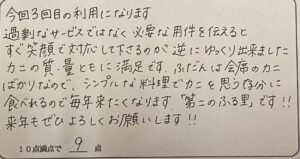 今回3回目の利用になります
過剰なサービスではなく必要な用件を伝えると
すぐ笑顔で対応して下さるのが逆にゆっくり出来ました
カニの質・量ともに満足です。ふだんは会席のカニ
ばかりなので、シンプルな料理でカニを思う存分に
食べれるので毎年来たくなります「第二のふる里」です!!
来年もぜひよろしくお願いします!!
10点満点で 9 点